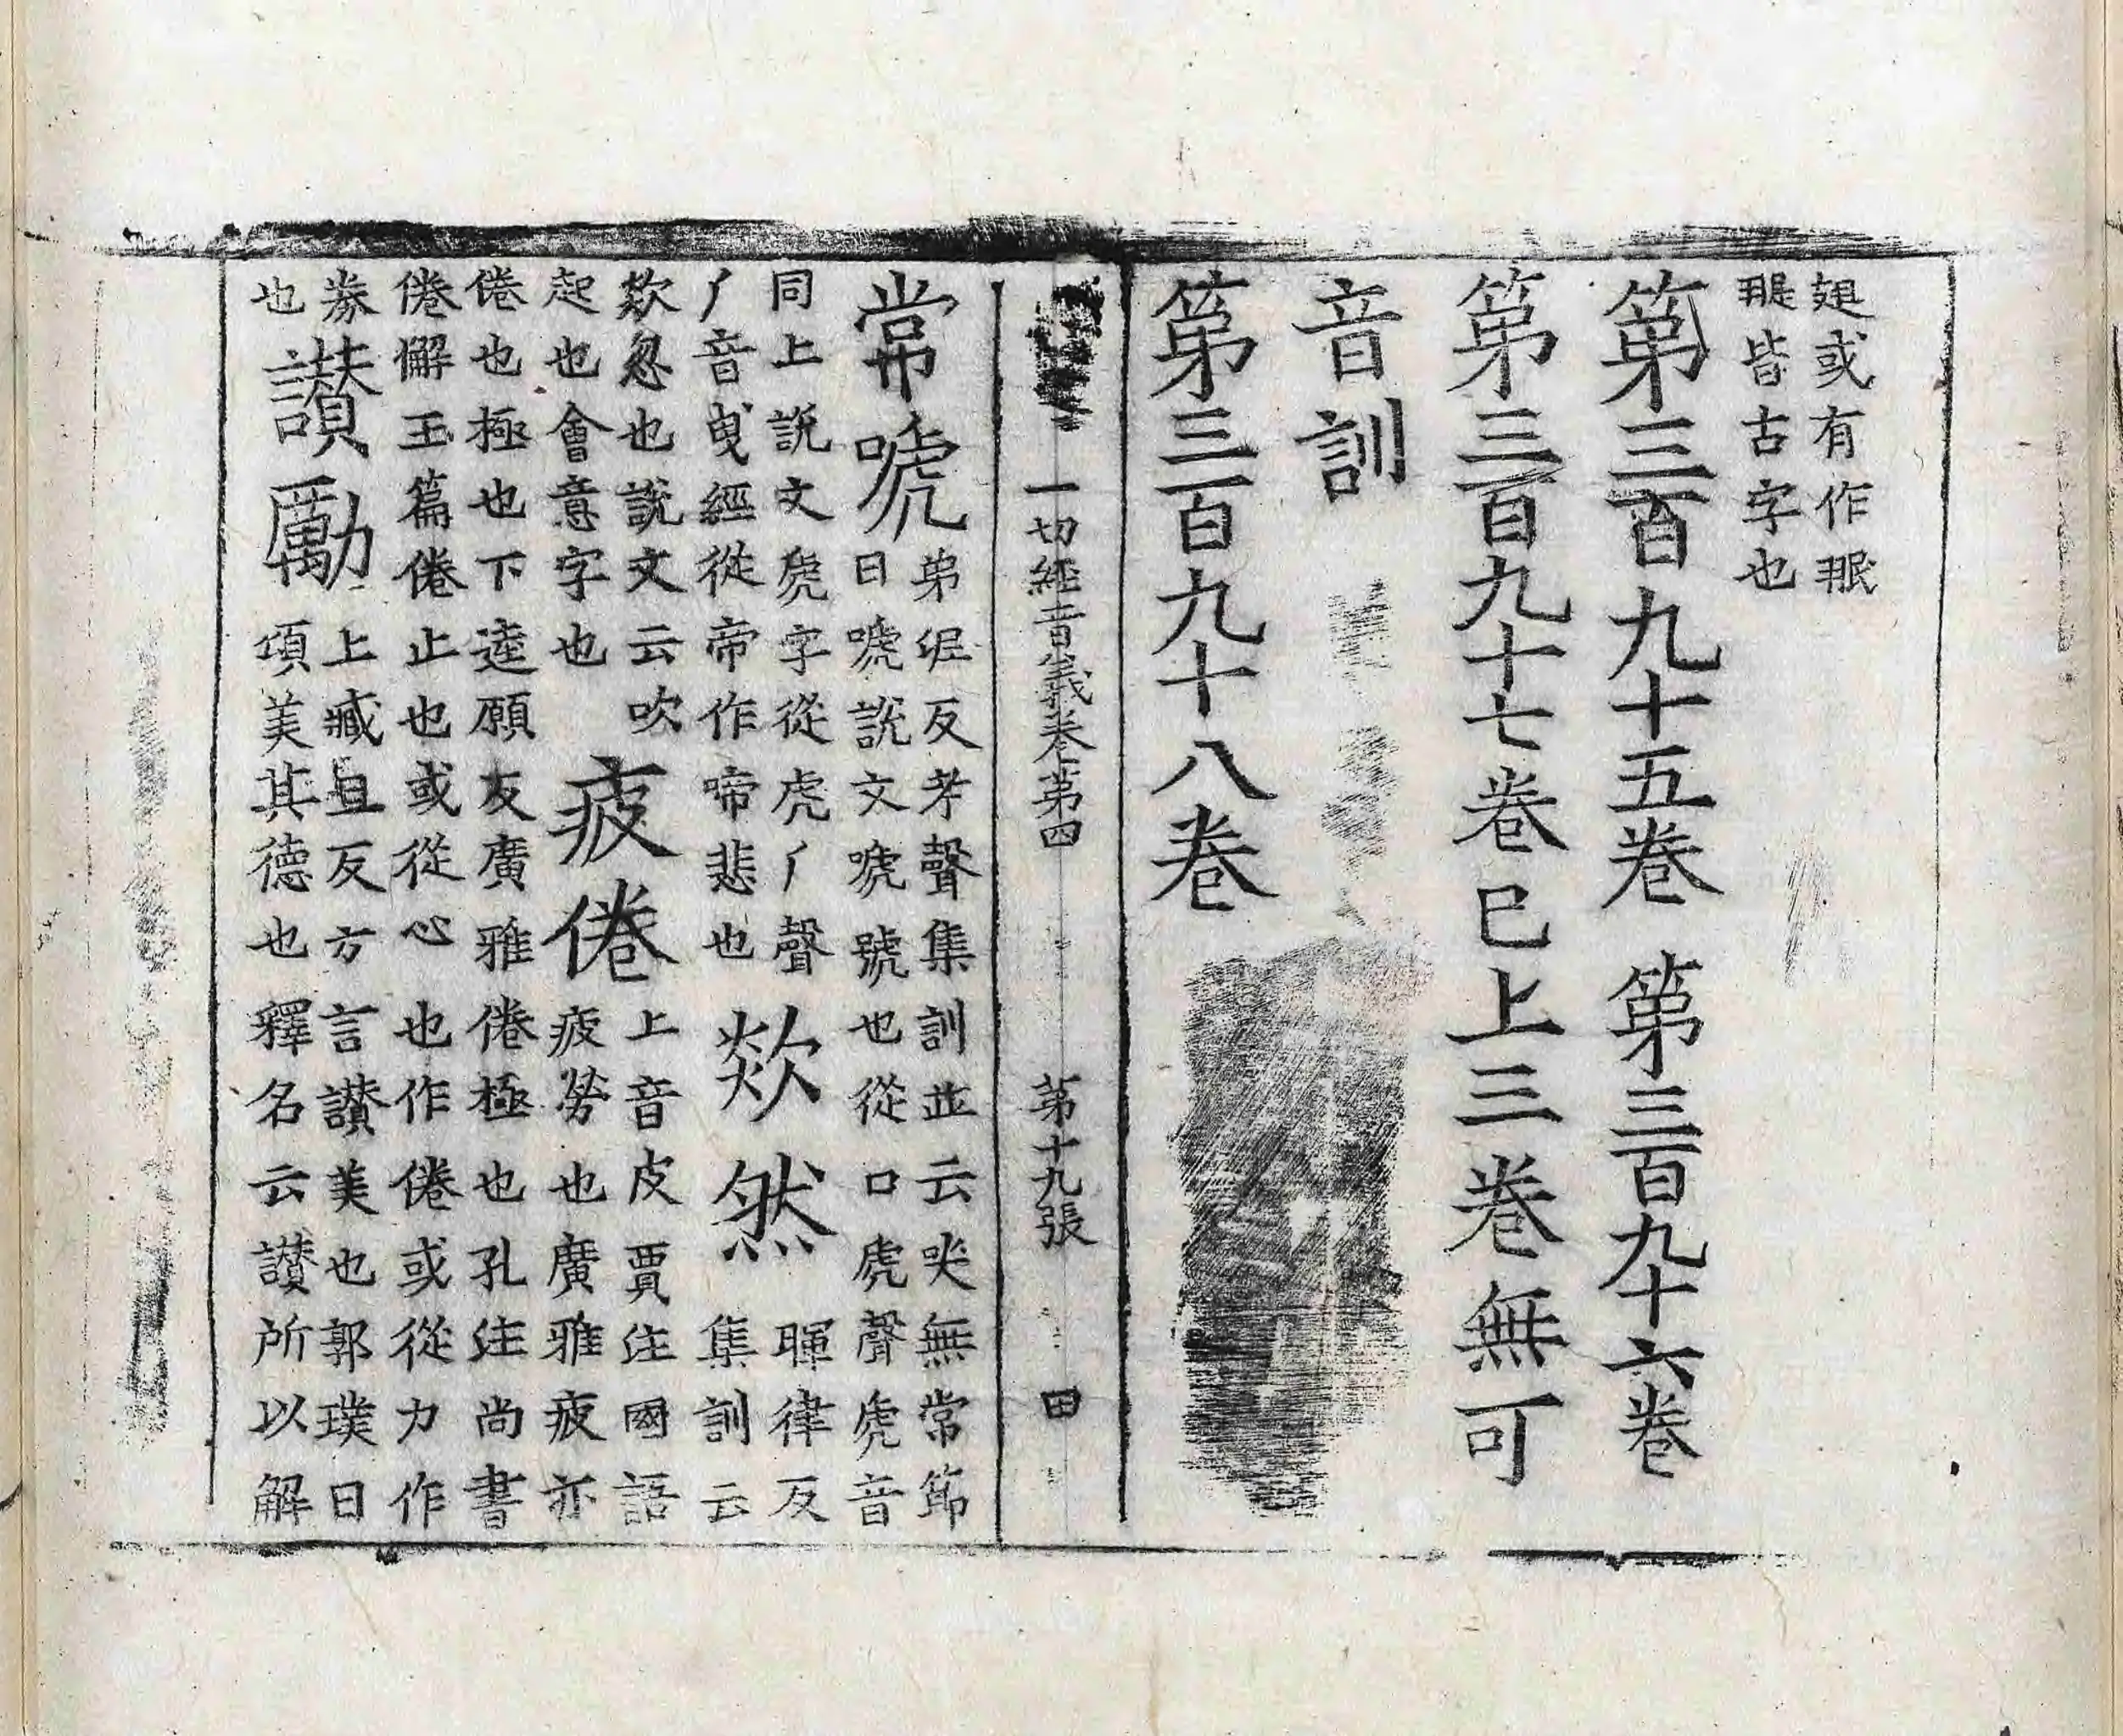 翅或有作𦐊
𦐊皆古字也
第三百九十五卷　第三百九十六卷
第三百九十七卷巳上三卷無可
音訓
第三百九十八卷
一切經音義卷第四　第十九張　田
常嗁
弟泥反考聲集訓並云哭無常節
日嗁說文嗁號也從口虒聲虒音
同上說文虒字從虎𠂆聲
𠂆音曳經從帝作啼悲也
欻然
暉律反
集訓云
欻忽也說文云吹
起也會意字也
疲倦
上音皮賈注國語
疲勞也廣雅疲亦
倦也極也下逵願反廣雅倦極也孔注尚書
倦懈玉篇倦止也或從心也作惓或從力作
劵
也
讚勵
上臧旦反方言讚美也郭璞曰
頌美其德也釋名云讚所以解